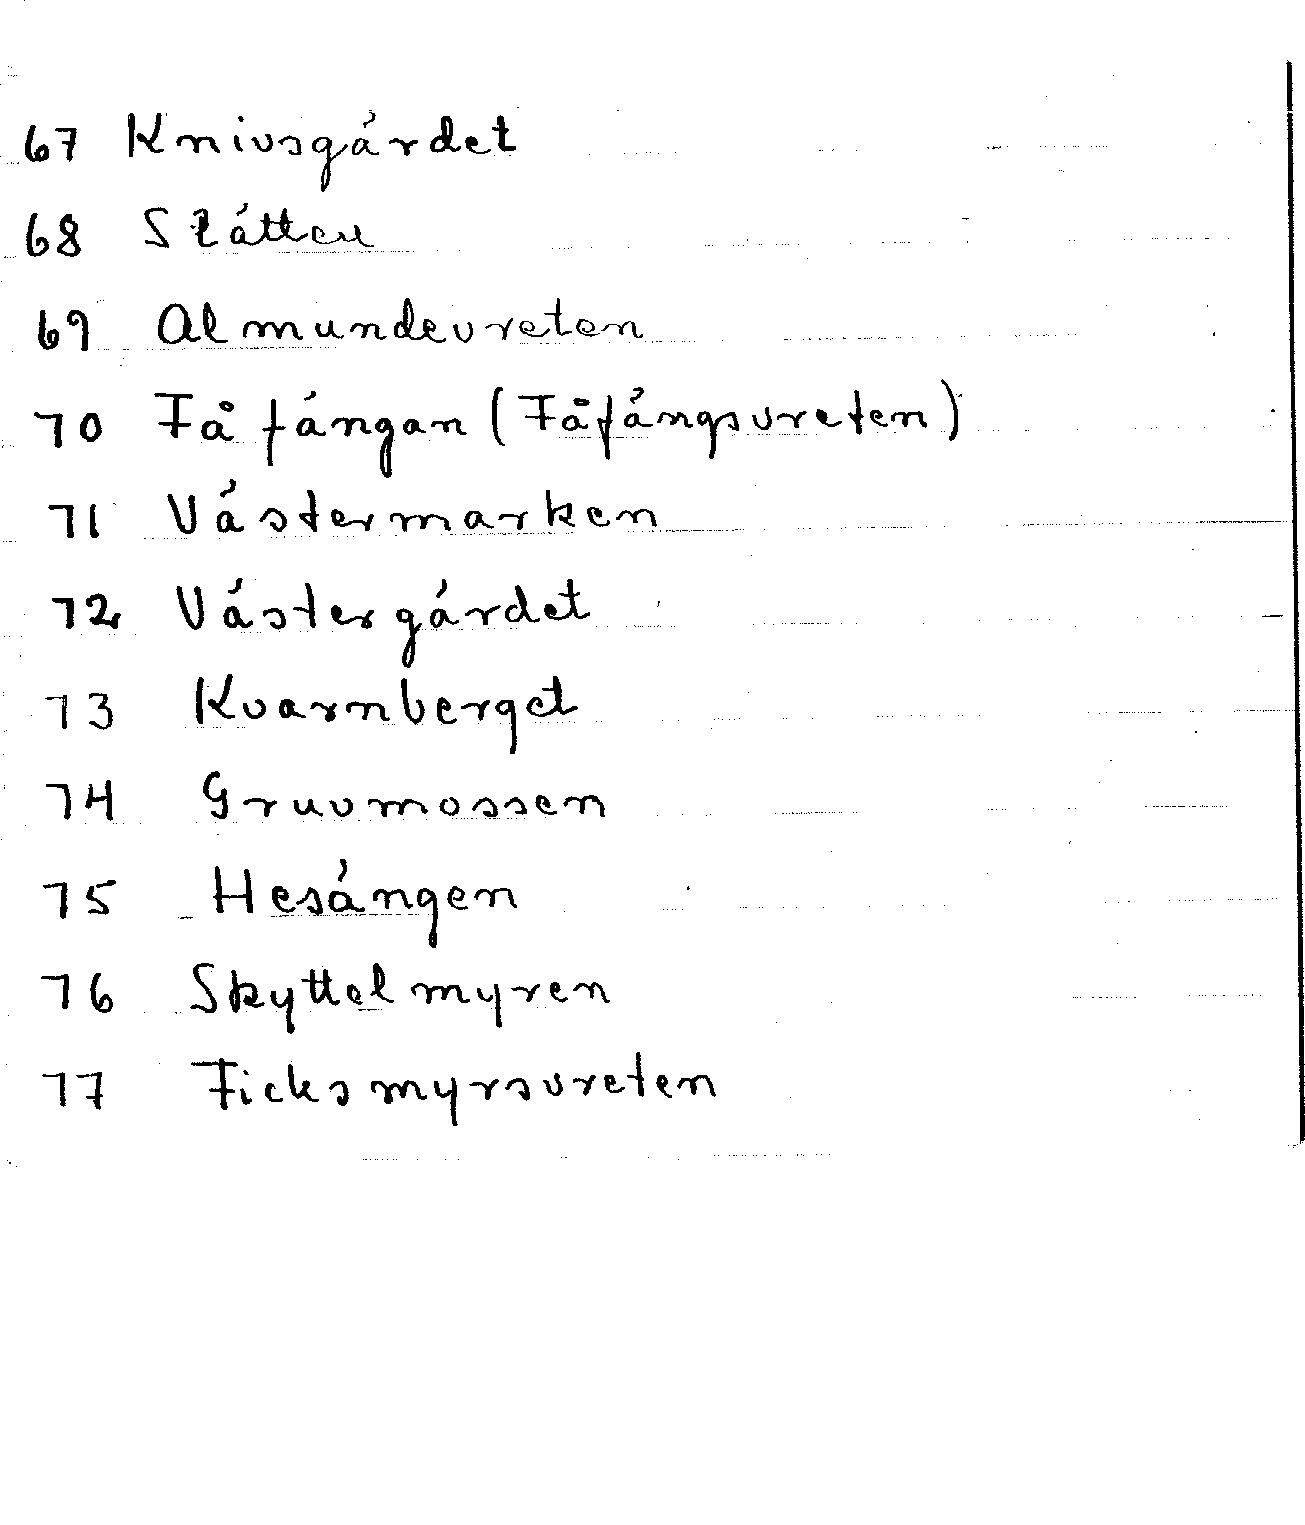 67 Knivsgärdet
68 Slätten
69 Almundevreten
70 Fåfängan (Fåfängsvreten)
71 Västermarken
72 Västergärdet
73 Kvarnberget
74 Gruvmossen
75 Hesängen
76 Skyttelmyren
77 Ficksmyrsvreten